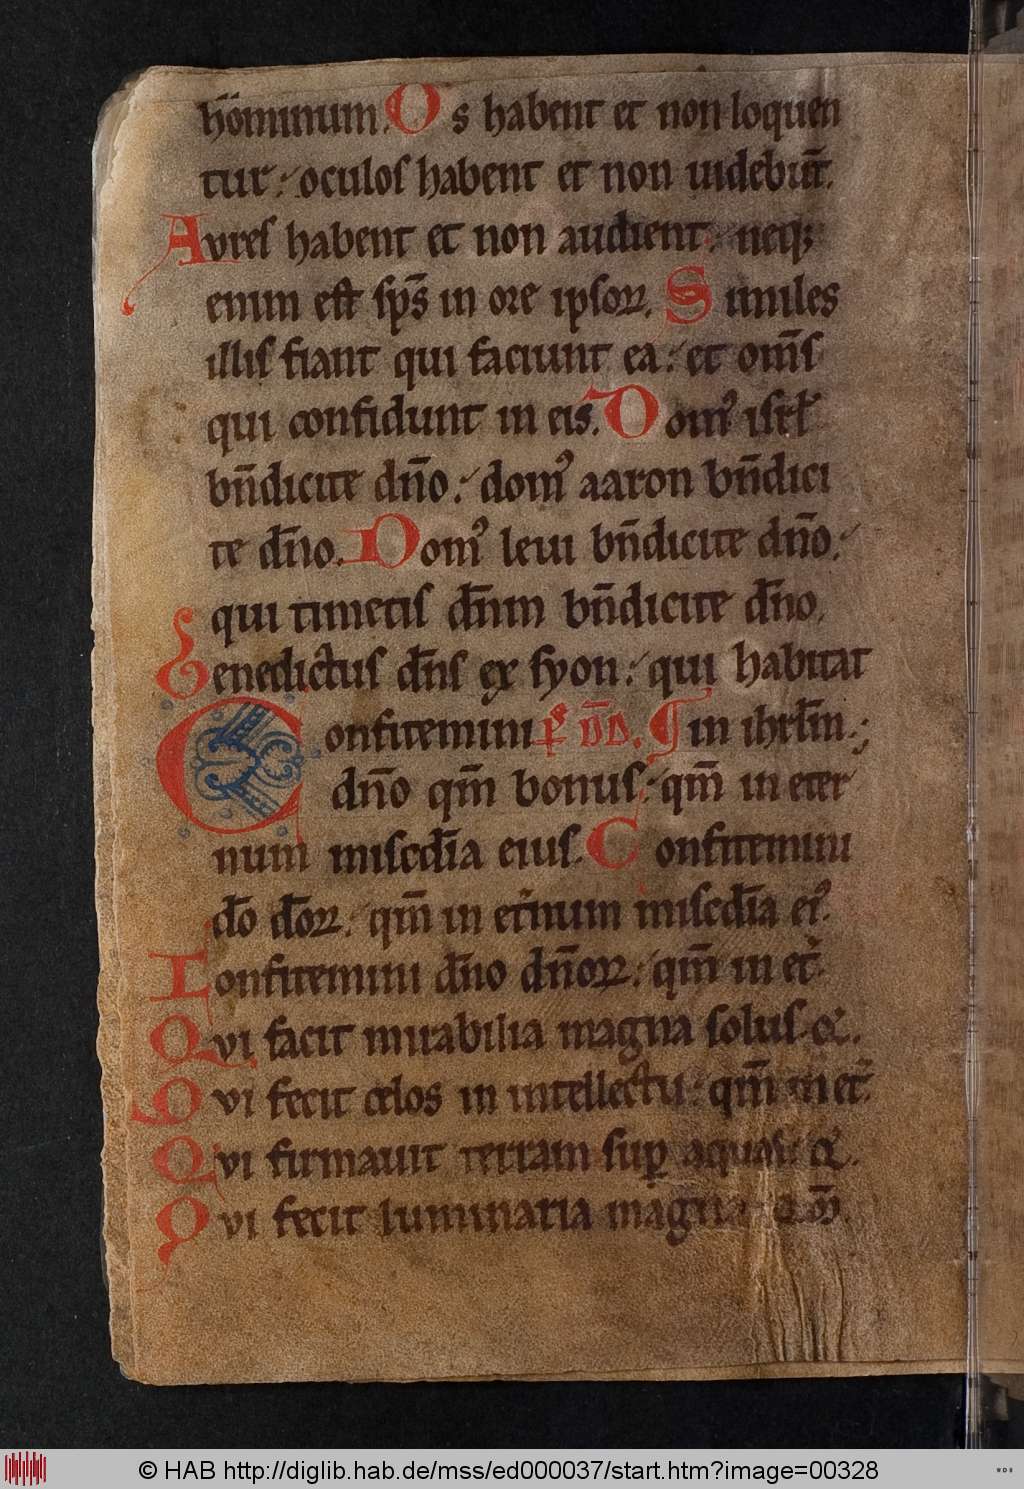 ho̅minum. Os habent et non loquen
tur: oculos habent et non uidebu̅t.
Avres habent et non audient: neqꝫ
enim est sp̅s in ore ipsoꝝ. Similes
illis fiant qui faciunt ea: et om̅s
qui confidunt in eis. Domꝰ isrl̅
bn̅dicite dn̅o: domꝰ aaron bn̅dici
te dn̅o. Domꝰ leui bn̅dicite dn̅o:
qui timetis dn̅m bn̅dicite dn̅o.
Benedictus dn̅s ex syon: qui habitat
Confitemini ps̅ DD̅. ¶ in ihrl̅m:
dn̅o qm̅ bonus: qm̅ in eter
num misc̅dia eius. Confitemini
do̅ do̅ꝝ: qm̅ in et̅num misc̅dia eiꝰ.
Confitemini dn̅o dn̅oꝝ: qm̅ in et̅.
Qvi facit mirabilia magna solus. q̅.
Qvi fecit celos in intellectu: qm̅ in et̅.
Qvi firmauit terram suꝑ aquas: q̅.
Qvi fecit luminaria magna: qm̅.
© HAB http://diglib.hab.de/mss/ed000037/start.htm?image=00328